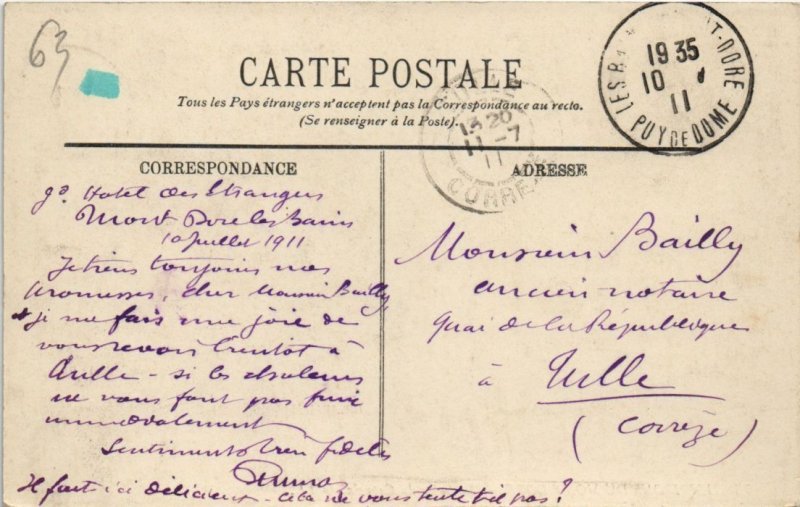 63
CARTE POSTALE
Tous les Pays étrangers n'acceptent pas la Correspondance au recto.
(Se renseigner à la Poste).
19 35
10
11
PUY DE DOME
13 20
11 - 7
11
CORRE
CORRESPONDANCE
ADRESSE
gd Hotel des Etrangers
Mont Dore les Bains
10 juillet 1911
Je tiens toujours mes
promesses, cher Monsieur Bailly,
& je me fais une joie de
vous revoir bientôt à
Tulle - si les chaleurs
ne vous font pas fuir
immédiatement
Sentiments très fidèles
Il fait ici délicieux - cela ne vous tente t-il pas ?
Monsieur Bailly
ancien notaire
quai de la République
à Tulle
(Corrèze)